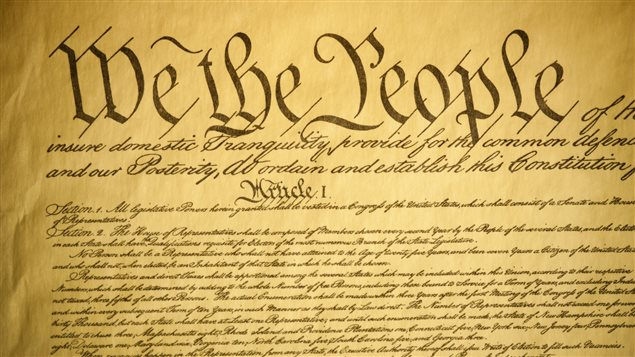 We the People of th
insure domestic Tranquility, provide for the common defenc
and our Posterity, do ordain and establish this Constitution f
Article. I.
Section. 1. All legislative Powers herein granted shall be vested in a Congress of the United States, which shall consist of a Senate and House
of Representatives.
Section. 2. The House of Representatives shall be composed of Members chosen every second Year by the People of the several States, and the Electors
in each State shall have the Qualifications requisite for Electors of the most numerous Branch of the State Legislature.
No Person shall be a Representative who shall not have attained to the Age of twenty five Years, and been seven Years a Citizen of the United States
and who shall not, when elected, be an Inhabitant of that State in which he shall be chosen.
Representatives and direct Taxes shall be apportioned among the several States which may be included within this Union, according to their respective
Numbers, which shall be determined by adding to the whole Number of free Persons, including those bound to Service for a Term of Years, and excluding Indians
not taxed, three fifths of all other Persons. The actual Enumeration shall be made within three Years after the first Meeting of the Congress of the United
and within every subsequent Term of ten Years, in such Manner as they shall by Law direct. The Number of Representatives shall not exceed one for every
thirty Thousand, but each State shall have at Least one Representative; and until such enumeration shall be made, the State of New Hampshire shall be
entitled to chuse three, Massachusetts eight, Rhode Island and Providence Plantations one, Connecticut five, New York six, New Jersey four, Pennsylvania
eight, Delaware one, Maryland six, Virginia ten, North Carolina five, South Carolina five, and Georgia three.
When vacancies happen in the Representation from any State, the Executive Authority thereof shall issue Writs of Election to fill such Vacancies.